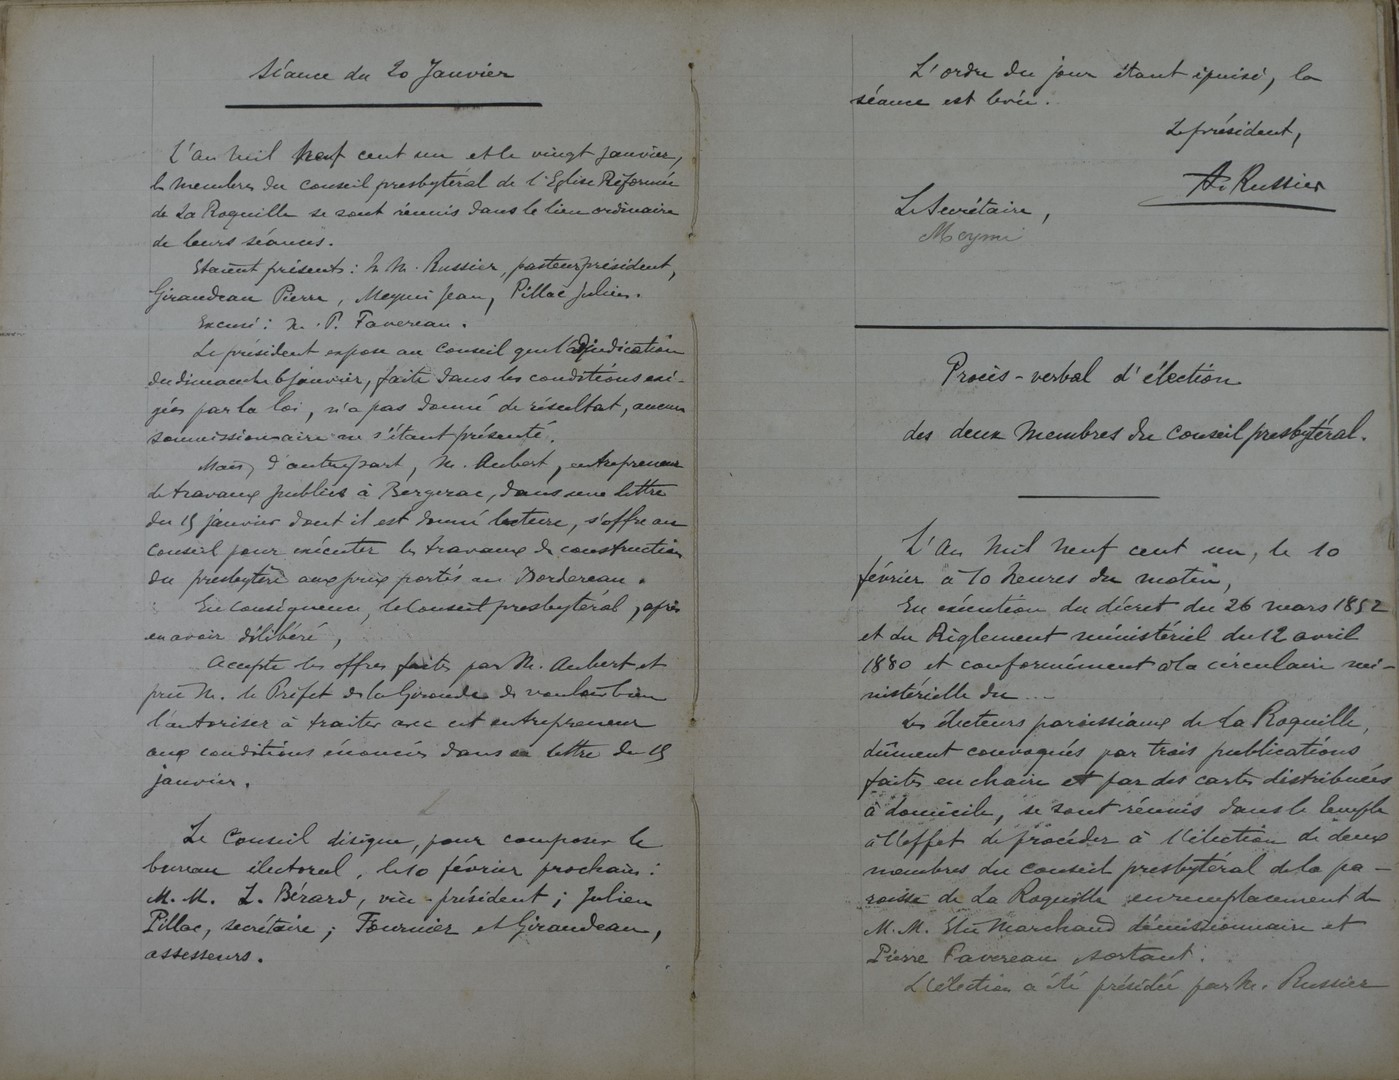 Séance du 20 Janvier
L'an mil neuf cent un et le vingt janvier,
les membres du Conseil presbytéral de l'Eglise Réformée
de La Roquille se sont réunis dans le lieu ordinaire
de leurs séances.
Etaient présents : M.M. Russier, pasteur président,
Giraudeau Pierre, Meymi Jean, Pillac Julien.
Excusé : M. P. Favereau.
Le président expose au Conseil que l'adjudication
du dimanche 6 janvier, faite dans les conditions exi-
gées par la loi, n'a pas donné de résultat, aucun
soumissionnaire ne s'étant présenté.
Mais, d'autre part, M. Aubert, entrepreneur
de travaux publics à Bergerac, dans une lettre
du 15 janvier dont il est donné lecture, s'offre au
Conseil pour exécuter les travaux de construction
du presbytère aux prix portés au Bordereau.
En conséquence, le Conseil presbytéral, après
en avoir délibéré,
Accepte les offres faites par M. Aubert et
prie M. le Préfet de la Gironde de vouloir bien
l'autoriser à traiter avec cet entrepreneur
aux conditions énoncées dans sa lettre du 15
janvier.
Le Conseil désigne, pour composer le
bureau électoral, le 10 février prochain :
M.M. L. Bérard, vice-président ; Julien
Pillac, secrétaire ; Fournier et Giraudeau,
assesseurs.
L'ordre du jour étant épuisé, la
séance est levée.
Le président,
A. Russier
Le Secrétaire,
Meymi
Procès-verbal d'élection
des deux membres du Conseil presbytéral.
L'an mil neuf cent un, le 10
février à 10 heures du matin,
En exécution du décret du 26 mars 1852
et du Règlement ministériel du 12 avril
1880 et conformément à la circulaire mi-
nistérielle du ...
Les électeurs paroissiaux de La Roquille,
dûment convoqués par trois publications
faites en chaire et par des cartes distribuées
à domicile, se sont réunis dans le temple
à l'effet de procéder à l'élection de deux
membres du Conseil presbytéral de la pa-
roisse de La Roquille en remplacement de
M.M. Elie Marchand démissionnaire et
Pierre Favereau sortant.
L'élection a été présidée par M. Russier